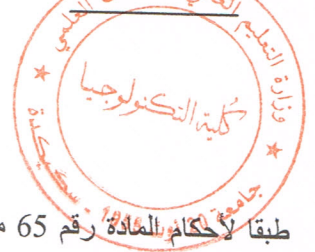 وزارة التعليم العالي العلمي
كلية التكنولوجيا
جامعة 1955 - سكيكدة
طبقا لأحكام المادة رقم 65